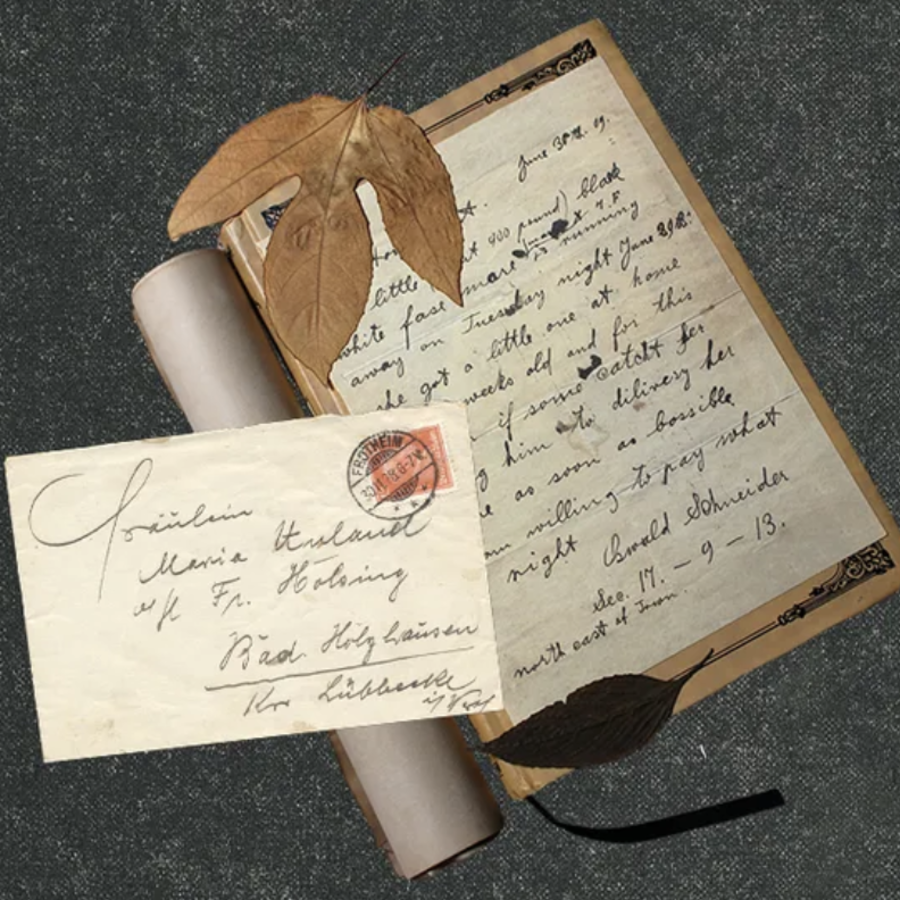 June 30th. 19.
400 pound) black
little
white fase mare is running
away on Tuesday night June 29th.
she got a little one at home
weeks old and for this
if some catcht her
him to dilivery her
as soon as bossible
willing to pay what
night
Oswald Schneider
Sec. 17. – 9 – 13.
north east of Town.
FROTHEIM
Fräulein
Maria Ursland
Fr. Holsing
Bad. Holzhausen
Kr. Lübbecke